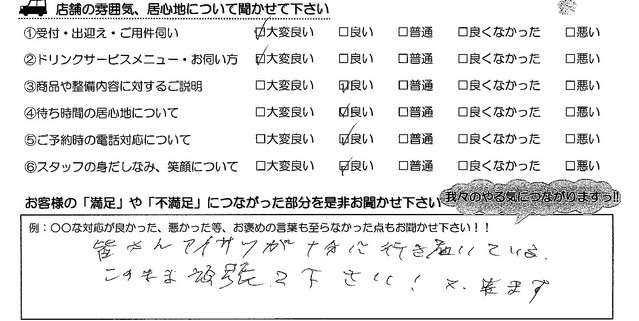 店舗の雰囲気、居心地について聞かせて下さい
①受付・出迎え・ご用件伺い ☑大変良い □良い □普通 □良くなかった □悪い
②ドリンクサービスメニュー・お伺い方 ☑大変良い □良い □普通 □良くなかった □悪い
③商品や整備内容に対するご説明 □大変良い ☑良い □普通 □良くなかった □悪い
④待ち時間の居心地について □大変良い ☑良い □普通 □良くなかった □悪い
⑤ご予約時の電話対応について □大変良い ☑良い □普通 □良くなかった □悪い
⑥スタッフの身だしなみ、笑顔について □大変良い ☑良い □普通 □良くなかった □悪い
お客様の「満足」や「不満足」につながった部分を是非お聞かせ下さい
我々のやる気につながりますっ!!
例：○○な対応が良かった、悪かった等、お褒めの言葉も至らなかった点もお聞かせ下さい！！
皆さんアイサツが十分に行き届いている、
このまま頑張って下さい！又、来ます